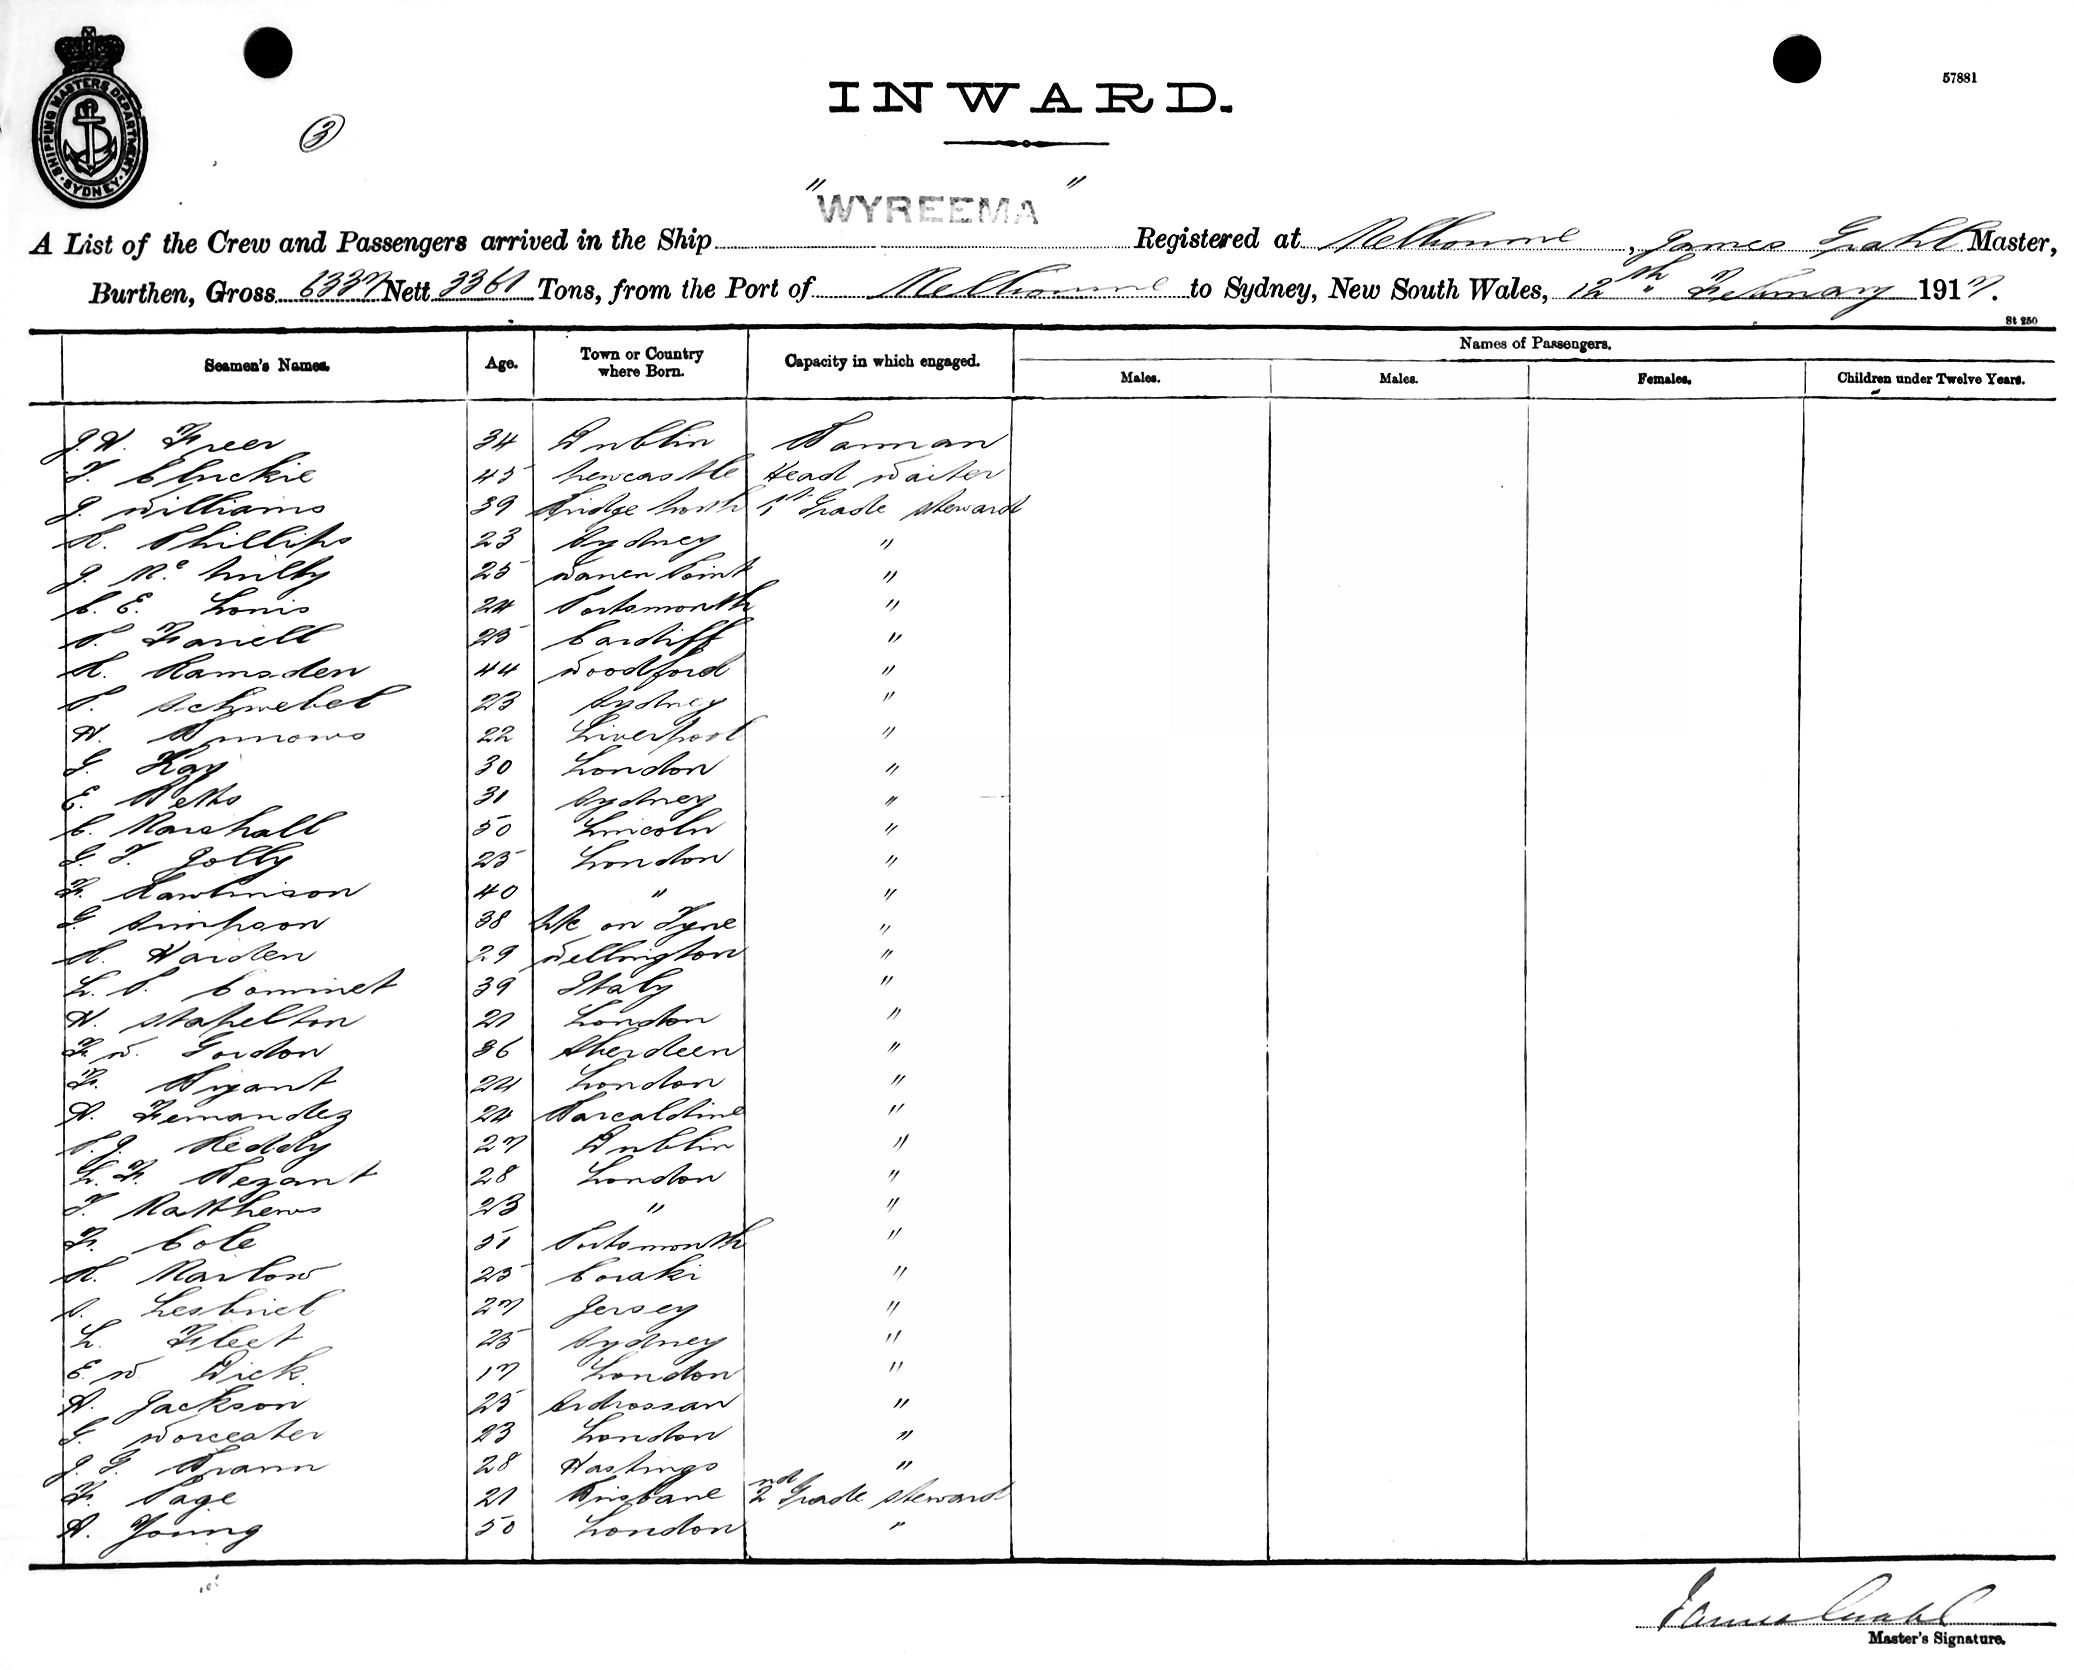 57881
SHIPPING MASTERS DEPARTMENT · SYDNEY ·
3
INWARD.
"WYREEMA"
A List of the Crew and Passengers arrived in the Ship Registered at Melbourne, James Grahl Master,
Burthen, Gross 6337 Nett 3361 Tons, from the Port of Melbourne to Sydney, New South Wales, 12th February 1917.
St 250
Seamen's Names. Age. Town or Country where Born. Capacity in which engaged. Names of Passengers.
Males. Males. Females. Children under Twelve Years.
J. H. Freer 34 Dublin Barman
T. Chickie 45 Newcastle Head Waiter
J. Williams 39 Bridge North 1st Grade Steward
R. Phillips 23 Sydney "
J. Mc Nulty 25 Warren Point "
C. E. Louis 24 Portsmouth "
P. Farrell 25 Cardiff "
R. Ramsden 44 Woodford "
P. Schwebel 23 Sydney "
H. Burrows 22 Liverpool "
G. Kay 30 London "
E. Betts 31 Sydney "
C. Marshall 50 Lincoln "
G. T. Jolly 25 London "
F. Rawlinson 40 " "
G. Simpson 38 N/c on Tyne "
R. Harden 29 Wellington "
L. P. Cominet 39 Italy "
H. Stapelton 21 London "
F. W. Gordon 36 Aberdeen "
F. Bryant 24 London "
A. Fernandez 24 Barcaldine "
P. J. Reddy 27 Dublin "
L. F. Bezant 28 London "
T. Matthews 23 " "
F. Cole 51 Portsmouth "
R. Marlow 25 Coraki "
S. Lesbriel 27 Jersey "
L. Fleet 25 Sydney "
E. W. Dick 17 London "
A. Jackson 25 Ardrossan "
G. Worcester 23 London "
J. G. Brann 28 Hastings "
F. Page 21 Brisbane 2nd Grade Steward
A. Young 50 London "
James Grahl
Master's Signature.